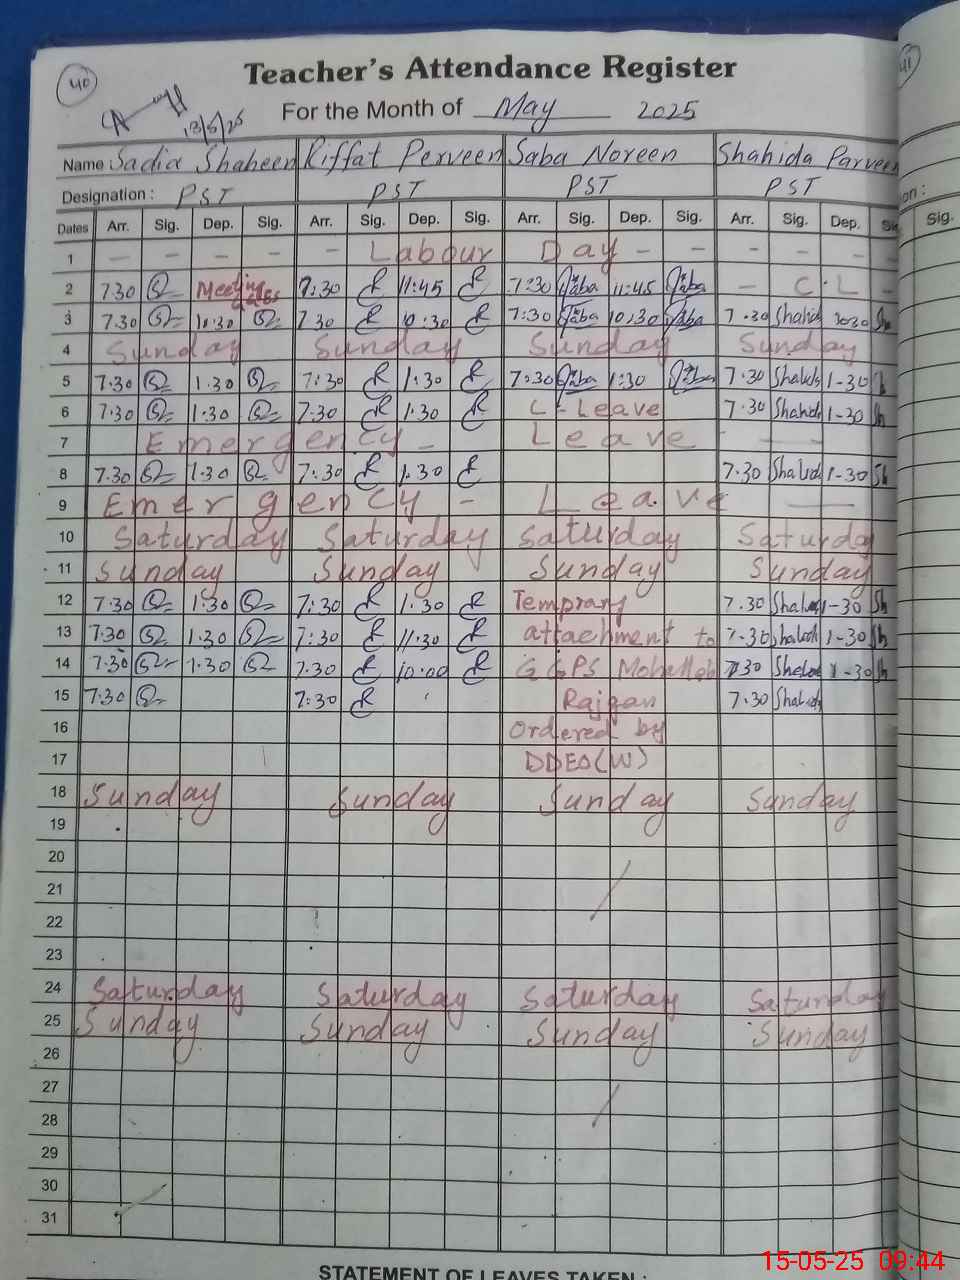 40
41
Teacher's Attendance Register
13/5/25
For the Month of May 2025
Name Sadia Shaheen Riffat Perveen Saba Noreen Shahida Parveen
Designation : PST PST PST PST on :
Dates Arr. Sig. Dep. Sig. Arr. Sig. Dep. Sig. Arr. Sig. Dep. Sig. Arr. Sig. Dep. Sig.
1 - - - - - Labour Day - - - - -
2 7.30 Meeting 7:30 R 11:45 R 7:30 Saba 11:45 Saba - C.L -
3 7.30 10.30 7.30 R 10:30 R 7:30 Saba 10:30 Saba 7.30 Shahid 10.30 Sh
4 Sunday Sunday Sunday Sunday
5 7.30 1.30 7:30 R 1:30 R 7:30 Saba 1:30 Saba 7.30 Shahid 1-30 Sh
6 7.30 1.30 7:30 R 1.30 R C-Leave 7.30 Shahid 1-30 Sh
7 Emergency - Leave - -
8 7.30 1.30 7:30 R 1.30 R 7.30 Shahid 1-30 Sh
9 Emergency - Leave -
10 Saturday Saturday Saturday Saturday
11 Sunday Sunday Sunday Sunday
12 7.30 1.30 7:30 R 1.30 R Temprary 7.30 Shahid 1-30 Sh
13 7.30 1.30 7:30 R 11.30 R attachment to 7.30 Shahid 1-30 Sh
14 7.30 1.30 7.30 R 10:00 R GGPS Mohallah 7.30 Shahid 1-30 Sh
15 7.30 7:30 R Rajgan 7.30 Shahid
16 Ordered by
17 DDEO(W)
18 Sunday Sunday Sunday Sunday
19
20
21
22
23
24 Saturday Saturday Saturday Saturday
25 Sunday Sunday Sunday Sunday
26
27
28
29
30
31
STATEMENT OF LEAVES TAKEN :
15-05-25 09:44